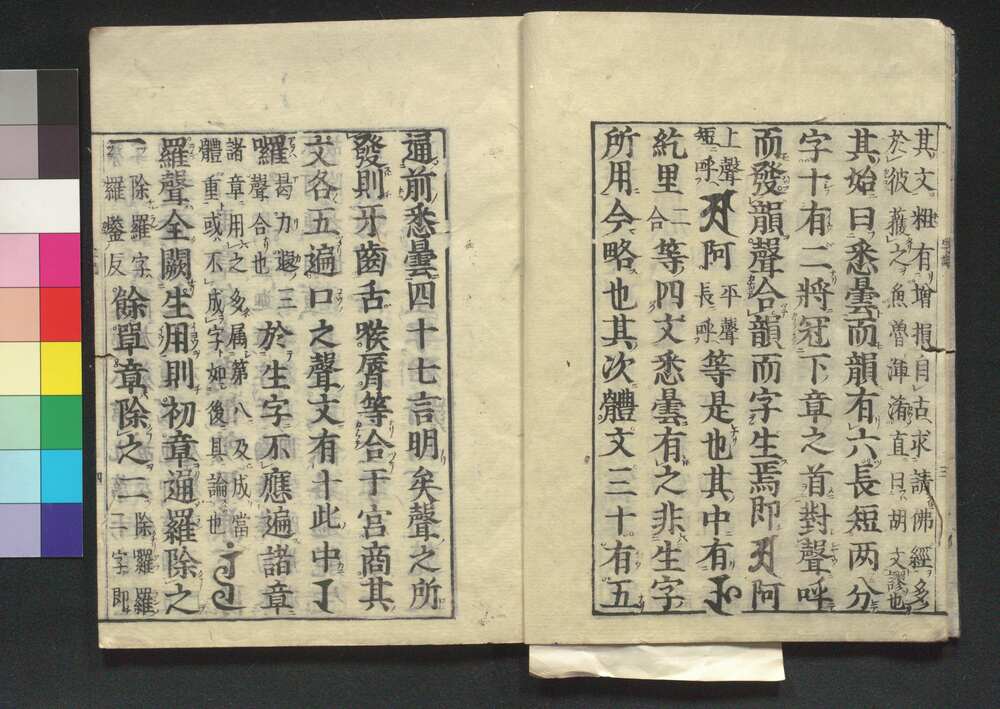 其文粗有增損自古求請佛經多
於彼獲之魚魯渾淆直曰胡文謬也
其始曰悉曇而韻有六長短两分
字十有二將冠下章之首對聲呼
而發韻聲合韻而字生焉即𑖀阿
上聲短呼𑖁阿平聲長呼等是也其中有
紇里二合等四文悉曇有之非生字
所用今略也其次體文三十有五
通前悉曇四十七言明矣聲之所
發則牙齒舌喉脣等合于宮商其
文各五遍口之聲文有十此中
囉曷力遐三聲合也於生字不應遍諸章
諸章用之多属第八及成當體重或不成字如後具論也
羅聲全闕生用則初章通羅除之
一除羅字羅鑒反餘單章除之二除羅羅二字即